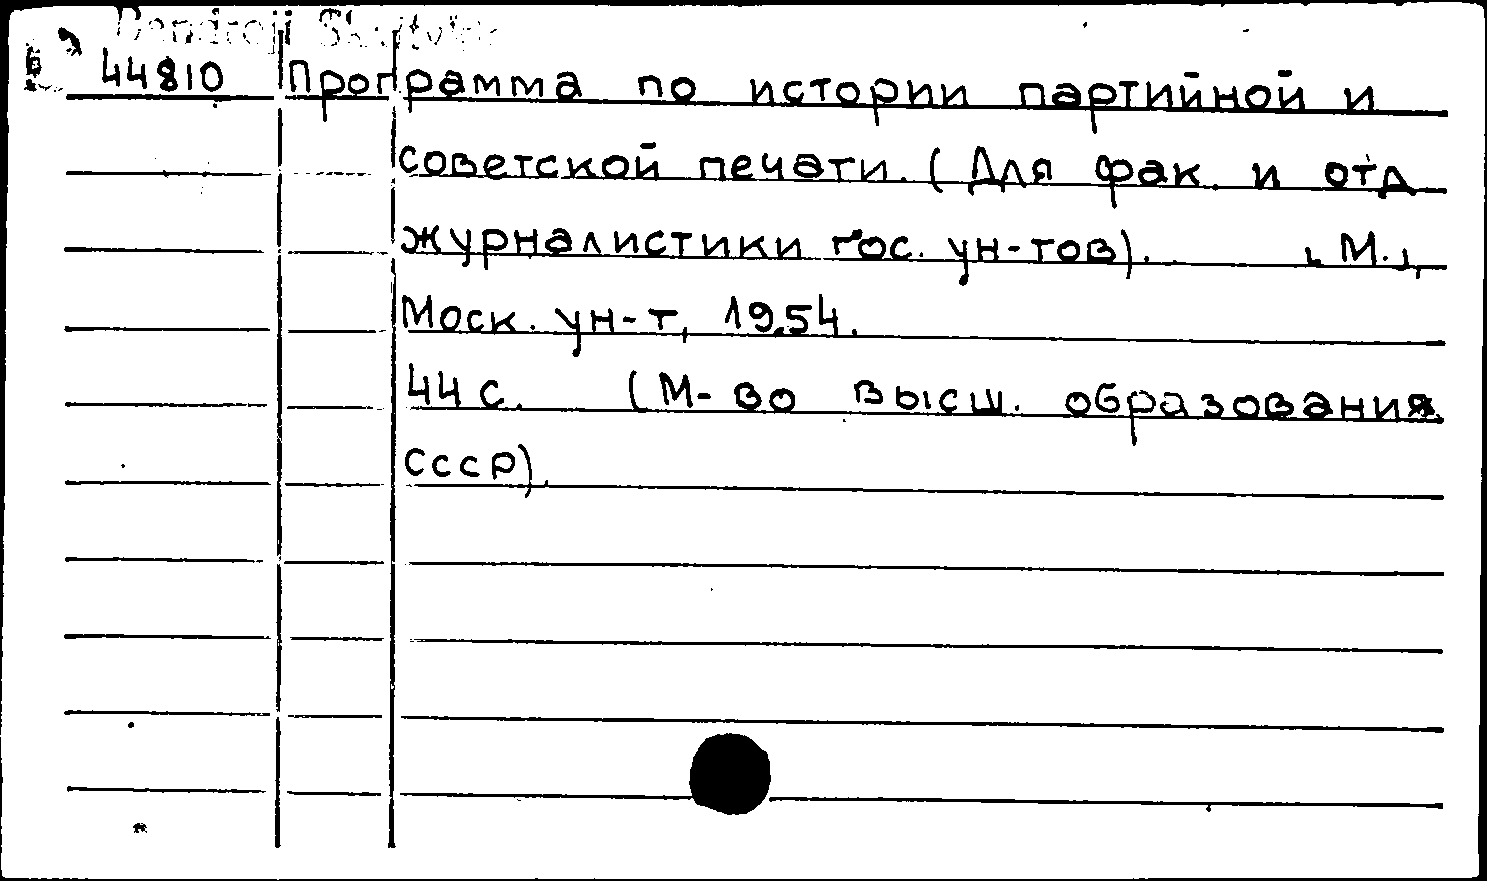 Bendroji Skaitykla
44810 Программа по истории партийной и
советской печати. (Для фак. и отд
журналистики гос. ун-тов). [М.],
Моск. ун-т, 1954.
44 с. (М-во высш. образования
СССР).